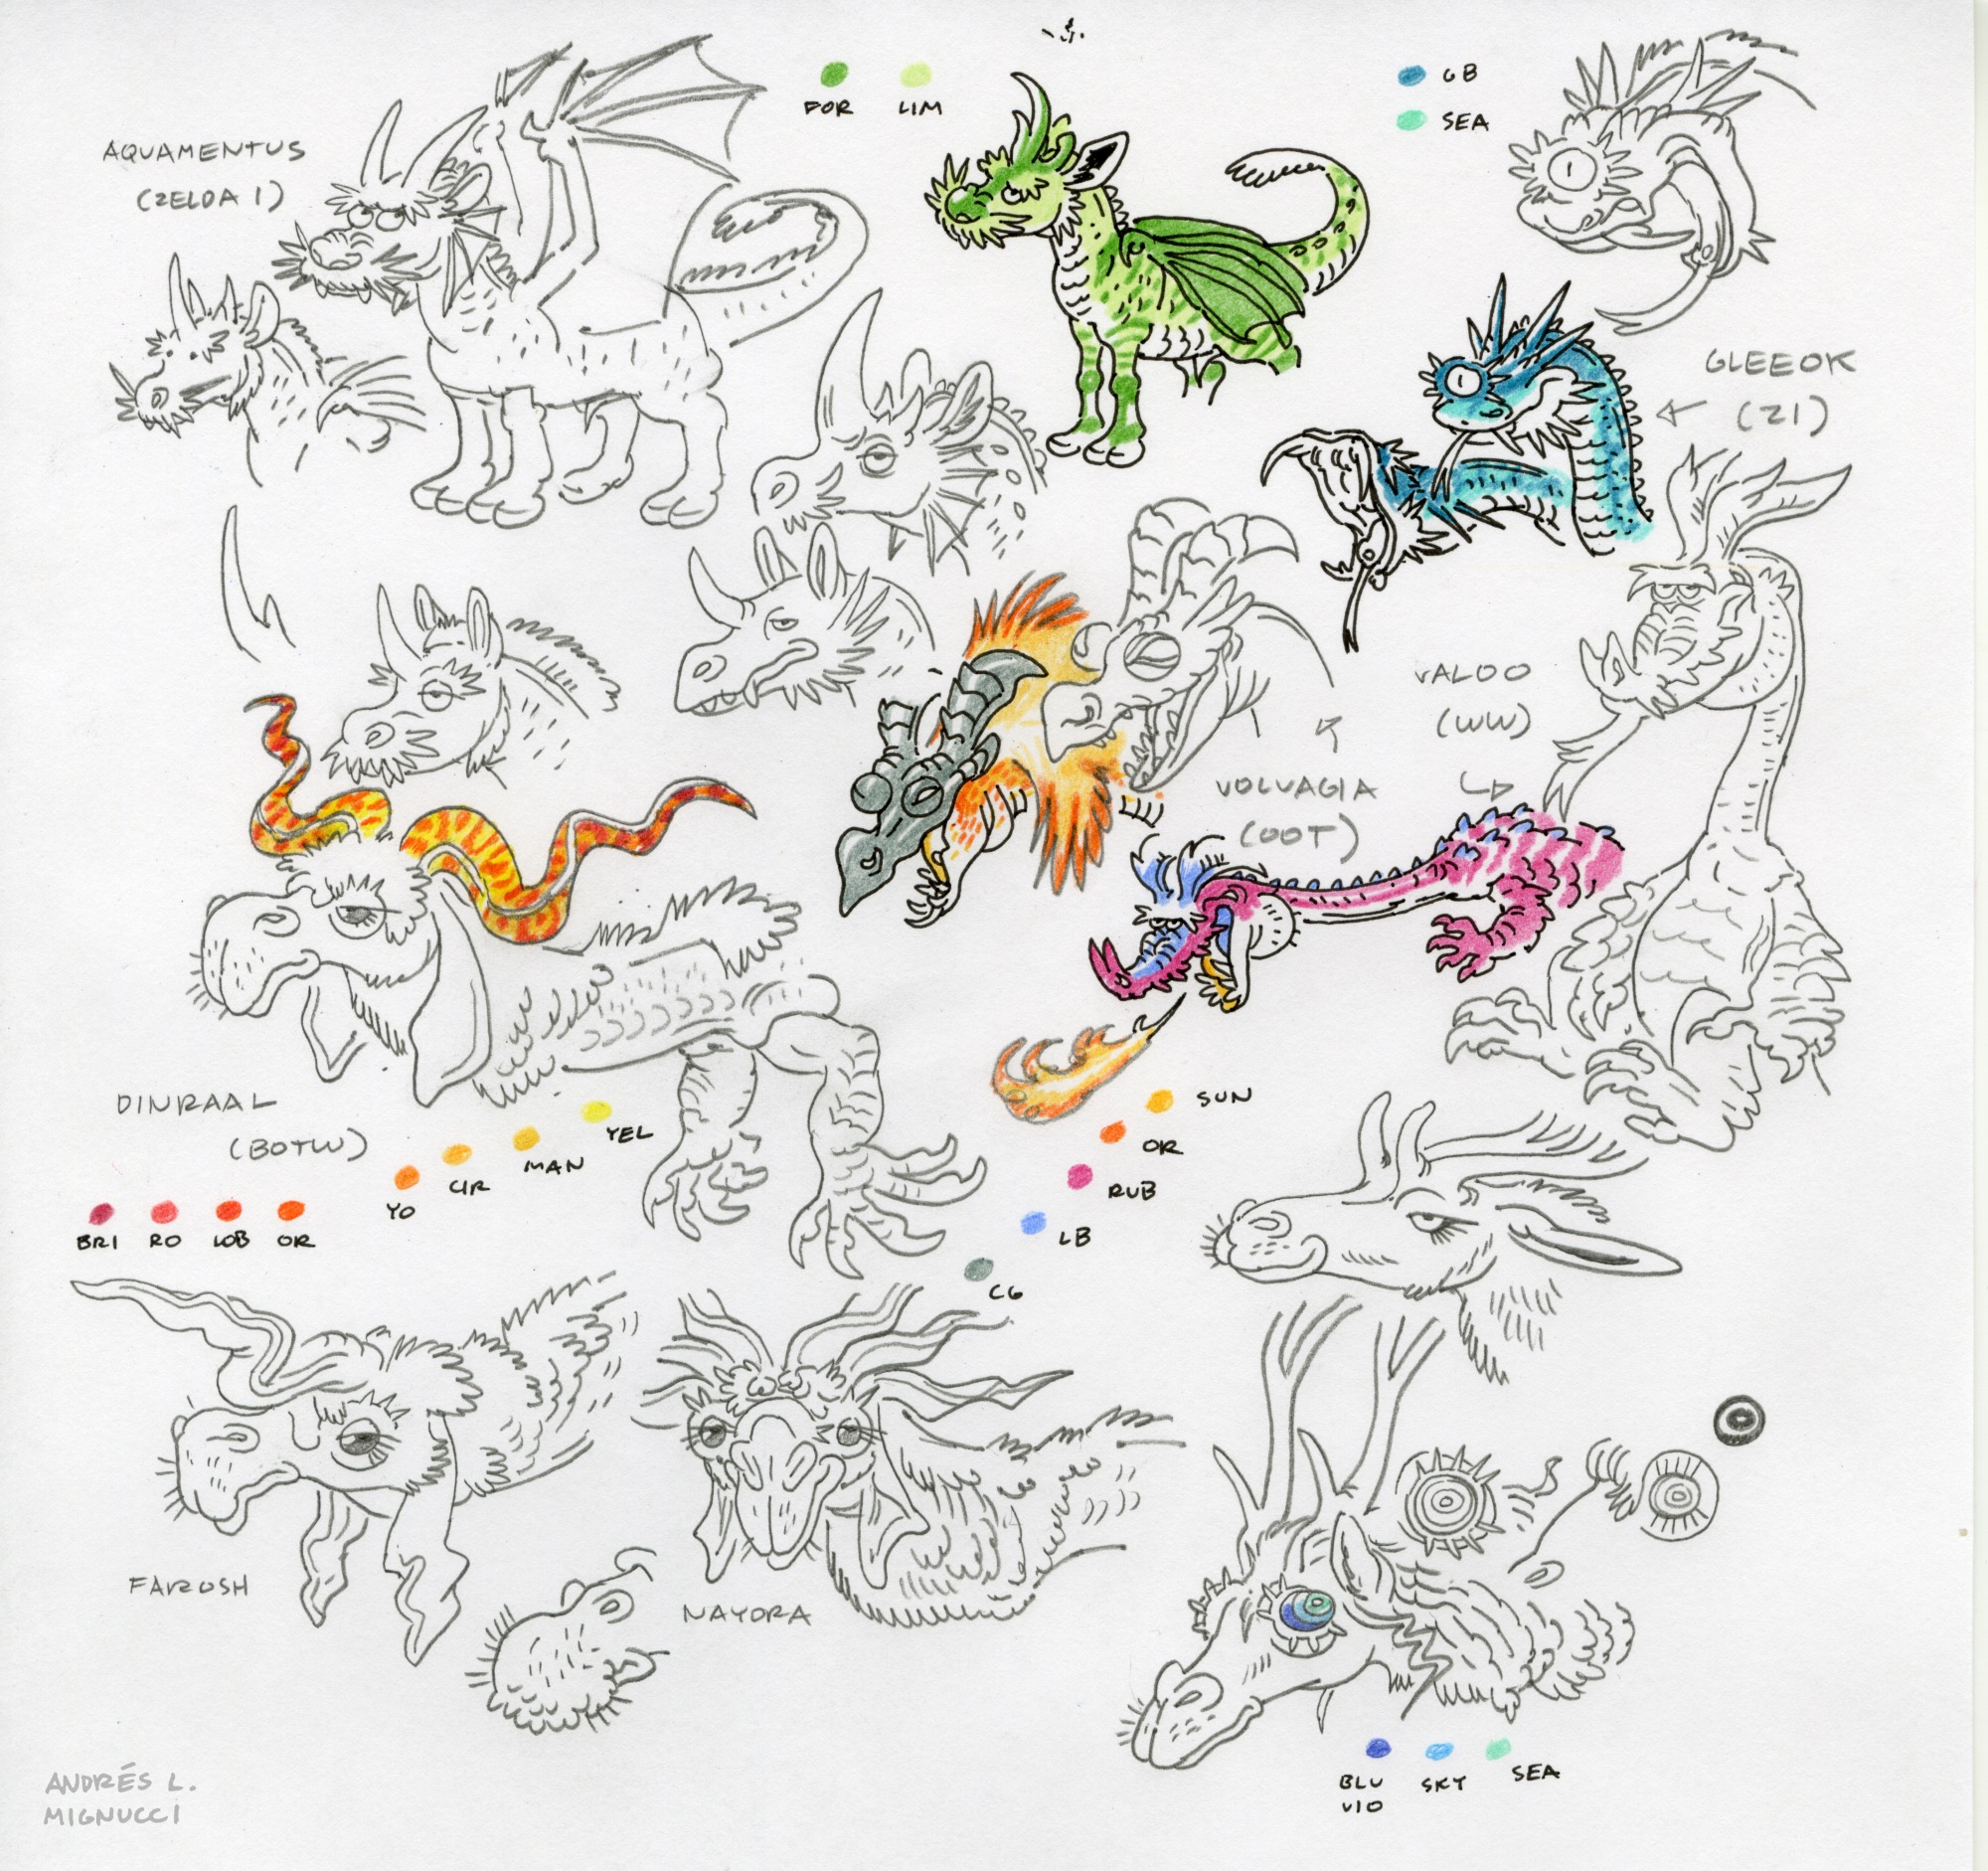 AQUAMENTUS
(ZELDA 1)
FOR
LIM
GB
SEA
GLEEOK
(Z1)
VALOO
(WW)
VOLVAGIA
(OOT)
DINRAAL
(BOTW)
YEL
MAN
YO
BRI
RO
OR
SUN
OR
RUB
LB
CG
FAROSH
NAYDRA
BLU
VIO
SKY
SEA
ANDRÉS L.
MIGNUCCI